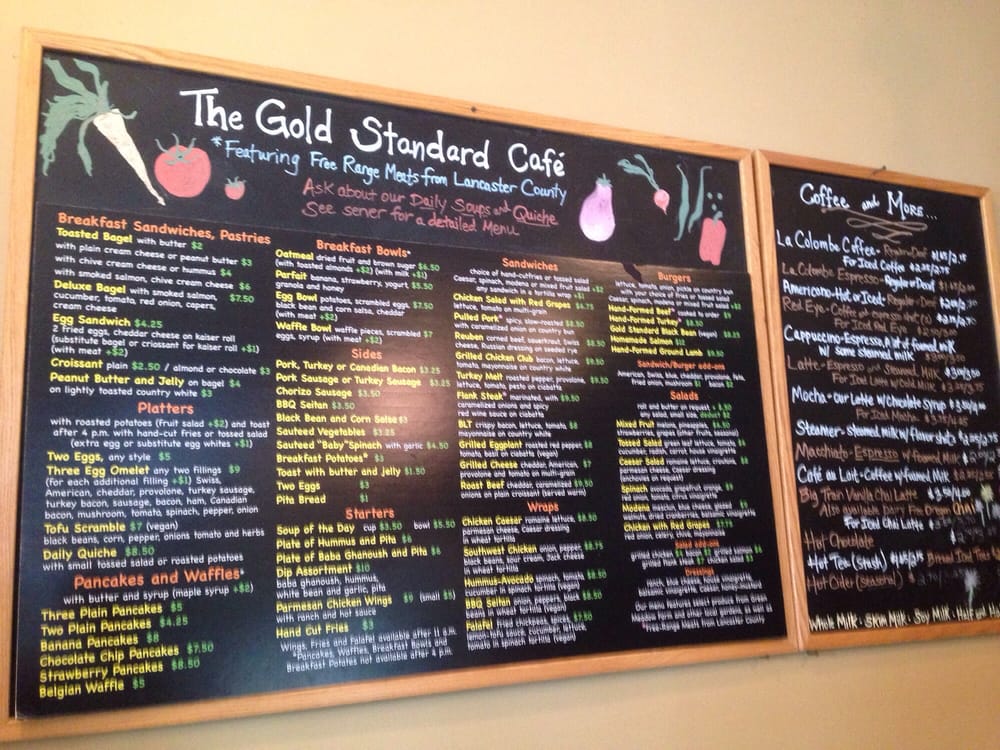 The Gold Standard Café
*Featuring Free Range Meats from Lancaster County
Ask about our Daily Soups and Quiche
See server for a detailed Menu
Breakfast Sandwiches, Pastries
Toasted Bagel with butter $2
with plain cream cheese or peanut butter $3
with chive cream cheese or hummus $4
with smoked salmon, chive cream cheese $6
Deluxe Bagel with smoked salmon, $7.50
cucumber, tomato, red onion, capers,
cream cheese
Egg Sandwich $4.25
2 fried eggs, cheddar cheese on kaiser roll
(substitute bagel or criossant for kaiser roll +$1)
(with meat +$2)
Croissant plain $2.50 / almond or chocolate $3
Peanut Butter and Jelly on bagel $4
on lightly toasted country white $3
Platters
with roasted potatoes (fruit salad +$2) and toast
after 4 p.m. with hand-cut fries or tossed salad
(extra egg or substitute egg whites +$1)
Two Eggs, any style $5
Three Egg Omelet any two fillings $9
(for each additional filling +$1) Swiss,
American, cheddar, provolone, turkey sausage,
turkey bacon, sausage, bacon, ham, Canadian
bacon, mushroom, tomato, spinach, pepper, onion
Tofu Scramble $7 (vegan)
black beans, corn, pepper, onions tomato and herbs
Daily Quiche $8.50
with small tossed salad or roasted potatoes
Pancakes and Waffles*
with butter and syrup (maple syrup +$2)
Three Plain Pancakes $5
Two Plain Pancakes $4.25
Banana Pancakes $8
Chocolate Chip Pancakes $7.50
Strawberry Pancakes $8.50
Belgian Waffle $5
Breakfast Bowls*
Oatmeal dried fruit and brown sugar $6.50
(with toasted almonds +$2) (with milk +$1)
Parfait banana, strawberry, yogurt, $5.50
granola and honey
Egg Bowl potatoes, scrambled eggs, $7.50
black bean and corn salsa, cheddar
(with meat +$2)
Waffle Bowl waffle pieces, scrambled $7
eggs, syrup (with meat +$2)
Sides
Pork, Turkey or Canadian Bacon $3.25
Pork Sausage or Turkey Sausage $3.25
Chorizo Sausage $3.50
BBQ Seitan $3.50
Black Bean and Corn Salsa $3
Sauteed Vegetables $3.25
Sauteed "Baby" Spinach with garlic $4.50
Breakfast Potatoes* $3
Toast with butter and jelly $1.50
Two Eggs $3
Pita Bread $1
Starters
Soup of the Day cup $3.50 bowl $5.50
Plate of Hummus and Pita $6
Plate of Baba Ghanoush and Pita $6
Dip Assortment $10
baba ghanoush, hummus,
white bean and garlic, pita
Parmesan Chicken Wings $9 (small $5)
with ranch and hot sauce
Hand Cut Fries $3
Wings, Fries and Falafel available after 11 a.m.
*Pancakes, Waffles, Breakfast Bowls and
Breakfast Potatoes not available after 4 p.m.
Sandwiches
choice of hand-cut fries or tossed salad
Caesar, spinach, modena or mixed fruit salad +$2
any sandwich in a tortilla wrap +$1
Chicken Salad with Red Grapes $8.75
lettuce, tomato on multi-grain
Pulled Pork* spicy, slow-roasted $8.50
with caramelized onion on country bun
Reuben corned beef, sauerkraut, Swiss $8.50
cheese, Russian dressing on seeded rye
Grilled Chicken Club bacon, lettuce, $9.50
tomato, mayonnaise on country white
Turkey Melt roasted pepper, provolone, $9.50
lettuce, tomato, pesto on ciabatta
Flank Steak* marinated, with $9.50
caramelized onions and spicy
red wine sauce on ciabatta
BLT crispy bacon, lettuce, tomato $8
mayonnaise on country white
Grilled Eggplant roasted red pepper, $8
tomato, basil on ciabatta (vegan)
Grilled Cheese cheddar, American, $7
provolone and tomato on multi-grain
Roast Beef cheddar, caramelized $9.50
onions on plain croissant (served warm)
Wraps
Chicken Caesar romaine lettuce, $8.50
parmesan cheese, Caesar dressing
in wheat tortilla
Southwest Chicken onion, pepper, $8.75
black beans, sour cream, Jack cheese
in wheat tortilla
Hummus-Avocado spinach, tomato, $8.50
cucumber in spinach tortilla (vegan)
BBQ Seitan onions, peppers, black $8.50
beans in wheat tortilla (vegan)
Falafel fried chickpeas, spices, $7.50
lemon-tofu sauce, cucumber, lettuce,
tomato in spinach tortilla (vegan)
Burgers
lettuce, tomato, onion, pickle on country bun
with your choice of fries or tossed salad
Caesar, spinach, modena or mixed fruit salad +$2
Hand-Formed Beef* cooked to order $9
Hand-Formed Turkey* $8.50
Gold Standard Black Bean (vegan) $8.25
Homemade Salmon $12
Hand-Formed Ground Lamb $9.50
Sandwich/Burger add-ons
American, Swiss, cheddar, provolone, feta,
fried onion, mushroom $1 bacon $2
Salads
roll and butter on request + $.50
any salad, small size, deduct $2
Mixed Fruit melons, pineapples, $8.50
strawberries, grapes (other fruits, seasonal)
Tossed Salad green leaf lettuce, tomato,
cucumber, radish, carrot, house vinaigrette
Caesar Salad romaine lettuce, croutons,
parmesan cheese, Caesar dressing
(anchovies on request)
Spinach avocado, grapefruit, orange, $9
onion, tomato, citrus vinaigrette
Modena mesclun, blue cheese, glazed
walnuts, dried cranberries, balsamic vinaigrette
Chicken with Red Grapes $7.75
red onion, celery, chive, mayonnaise
Salad add-ons
grilled chicken $4 bacon $2 grilled salmon
grilled flank steak chicken salad
Dressings
ranch, blue cheese, house vinaigrette,
Our menu features select produce from Green
Meadow Farm and other local gardens, as well as
*Free-Range Meats from Lancaster County
Coffee and More...
La Colombe Coffee - Regular-Decaf
For Iced Coffee
La Colombe Espresso - Regular or Decaf
Americano-Hot or Iced - Regular - Decaf
Red Eye - Coffee w/
Iced Red Eye
Cappuccino-Espresso, A lot of foamed milk
w/ some steamed milk
Latte - Espresso and Steamed Milk
For Iced Latte w/ Cold Milk
Mocha - our Latte w/ Chocolate syrup
For Iced Mocha
Steamer - steamed milk w/ flavor shots
Macchiato - Espresso w/ foamed milk
Café au Lait - Coffee w/ foamed milk
Big Train Vanilla Chai Latte
Also available Dairy Free Dragon Chai
For Iced Chai Latte
Hot Chocolate
Hot Tea (stash)
Hot Cider (seasonal)
Whole Milk · Skim Milk · Soy Milk · Half and Half